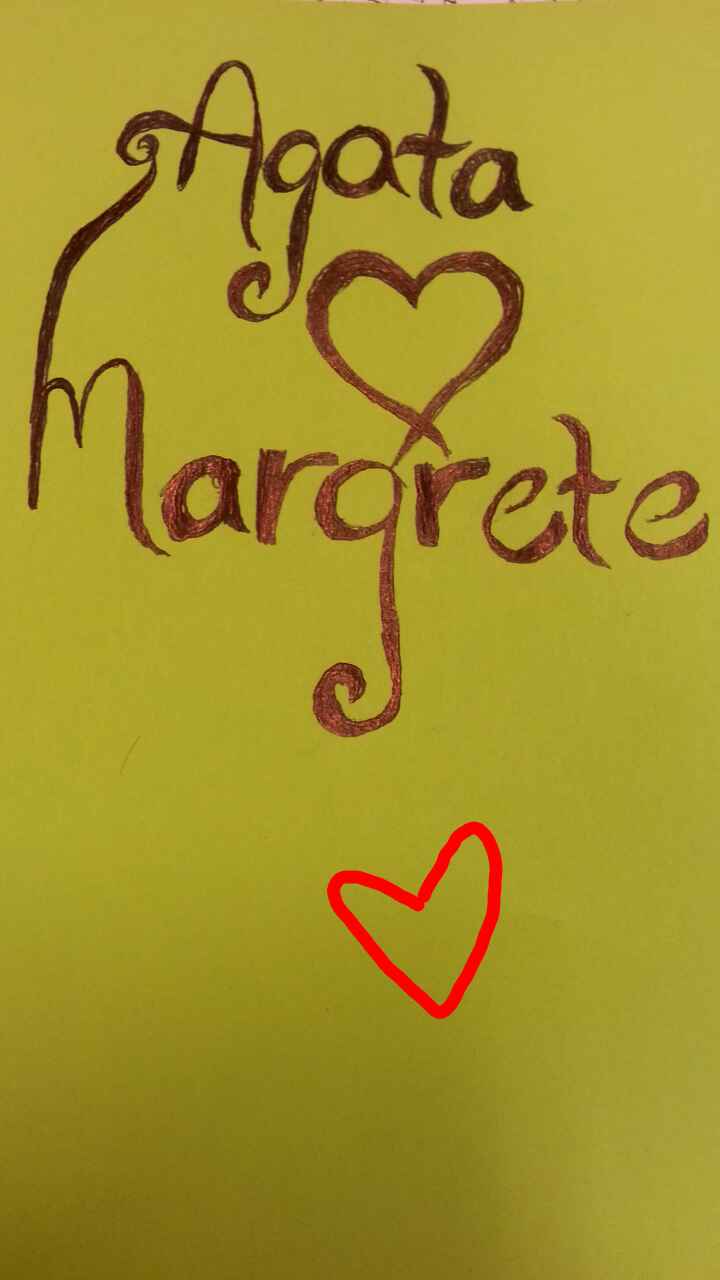 Agata
Margrete